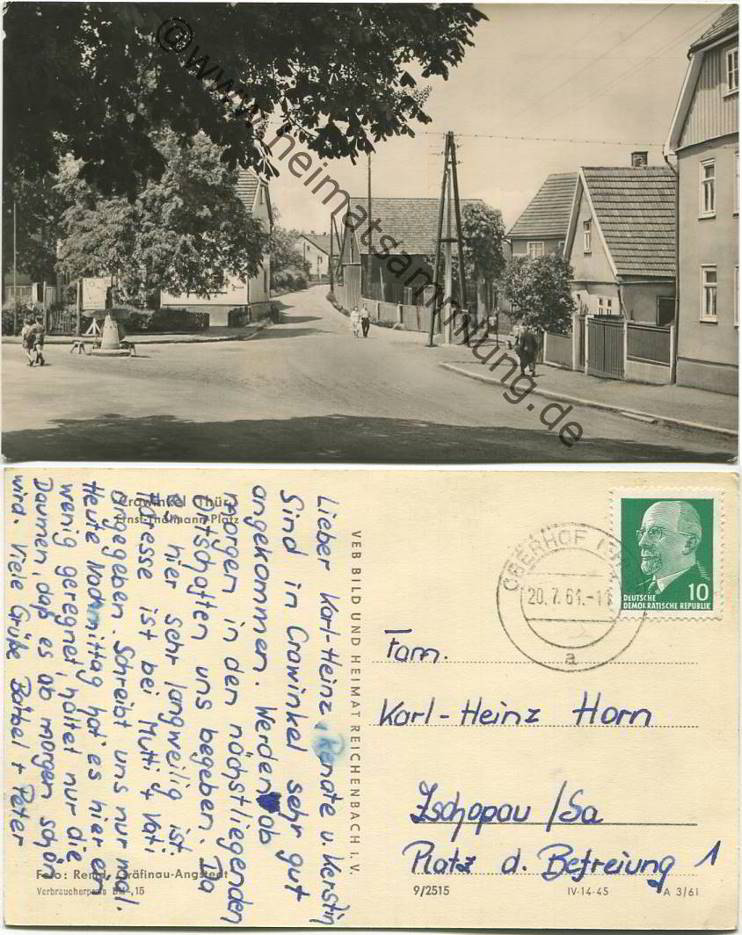 ©www.heimatsammlung.de
Crawinkel Thür.
Ernst-Thälmann-Platz
Lieber Karl-Heinz, Renate u. Kerstin
Sind in Crawinkel sehr gut
angekommen. Werden ab
morgen in den nächstliegenden
Ortschaften uns begeben. Da
es hier sehr langweilig ist.
Adresse ist bei Mutti + Vati
angegeben. Schreibt uns nur mal.
Heute Nachmittag hat es hier ein
wenig geregnet, haltet nur die
Daumen, daß es ab morgen schön
wird. Viele Grüße Bärbel + Peter
VEB BILD UND HEIMAT REICHENBACH I. V.
OBERHOF
20.7.61.-11
a
10
DEUTSCHE
DEMOKRATISCHE REPUBLIK
Fam.
Karl-Heinz Horn
Zschopau /Sa
Platz d. Befreiung 1
Foto: Gräfinau-Angstedt
Verbraucherpreis ,15
9/2515
IV-14-45
A 3/61